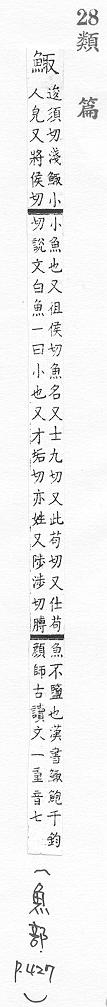 28類篇
鯫
逡須切淺鯫小
人皃又將侯切
小魚也又徂侯切魚名又士九切又此苟切又仕苟
切說文白魚一曰小也又才垢切亦姓又陟涉切膊
魚不鹽也漢書鯫鮑千鈞
顏師古讀文一重音七
(魚部 P.427)